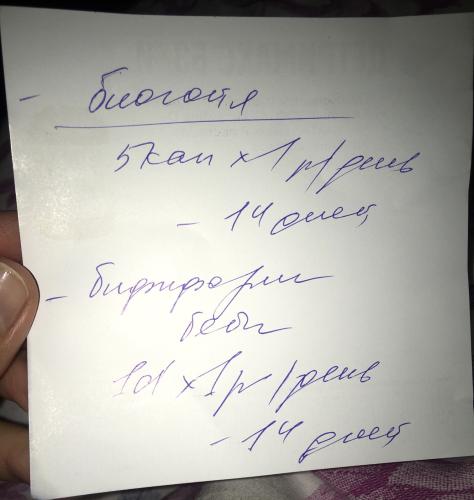 - биогоия
5кап x 1 р/день
- 14 дней
- бифиформ
беби
1d x 1р/день
- 14 дней